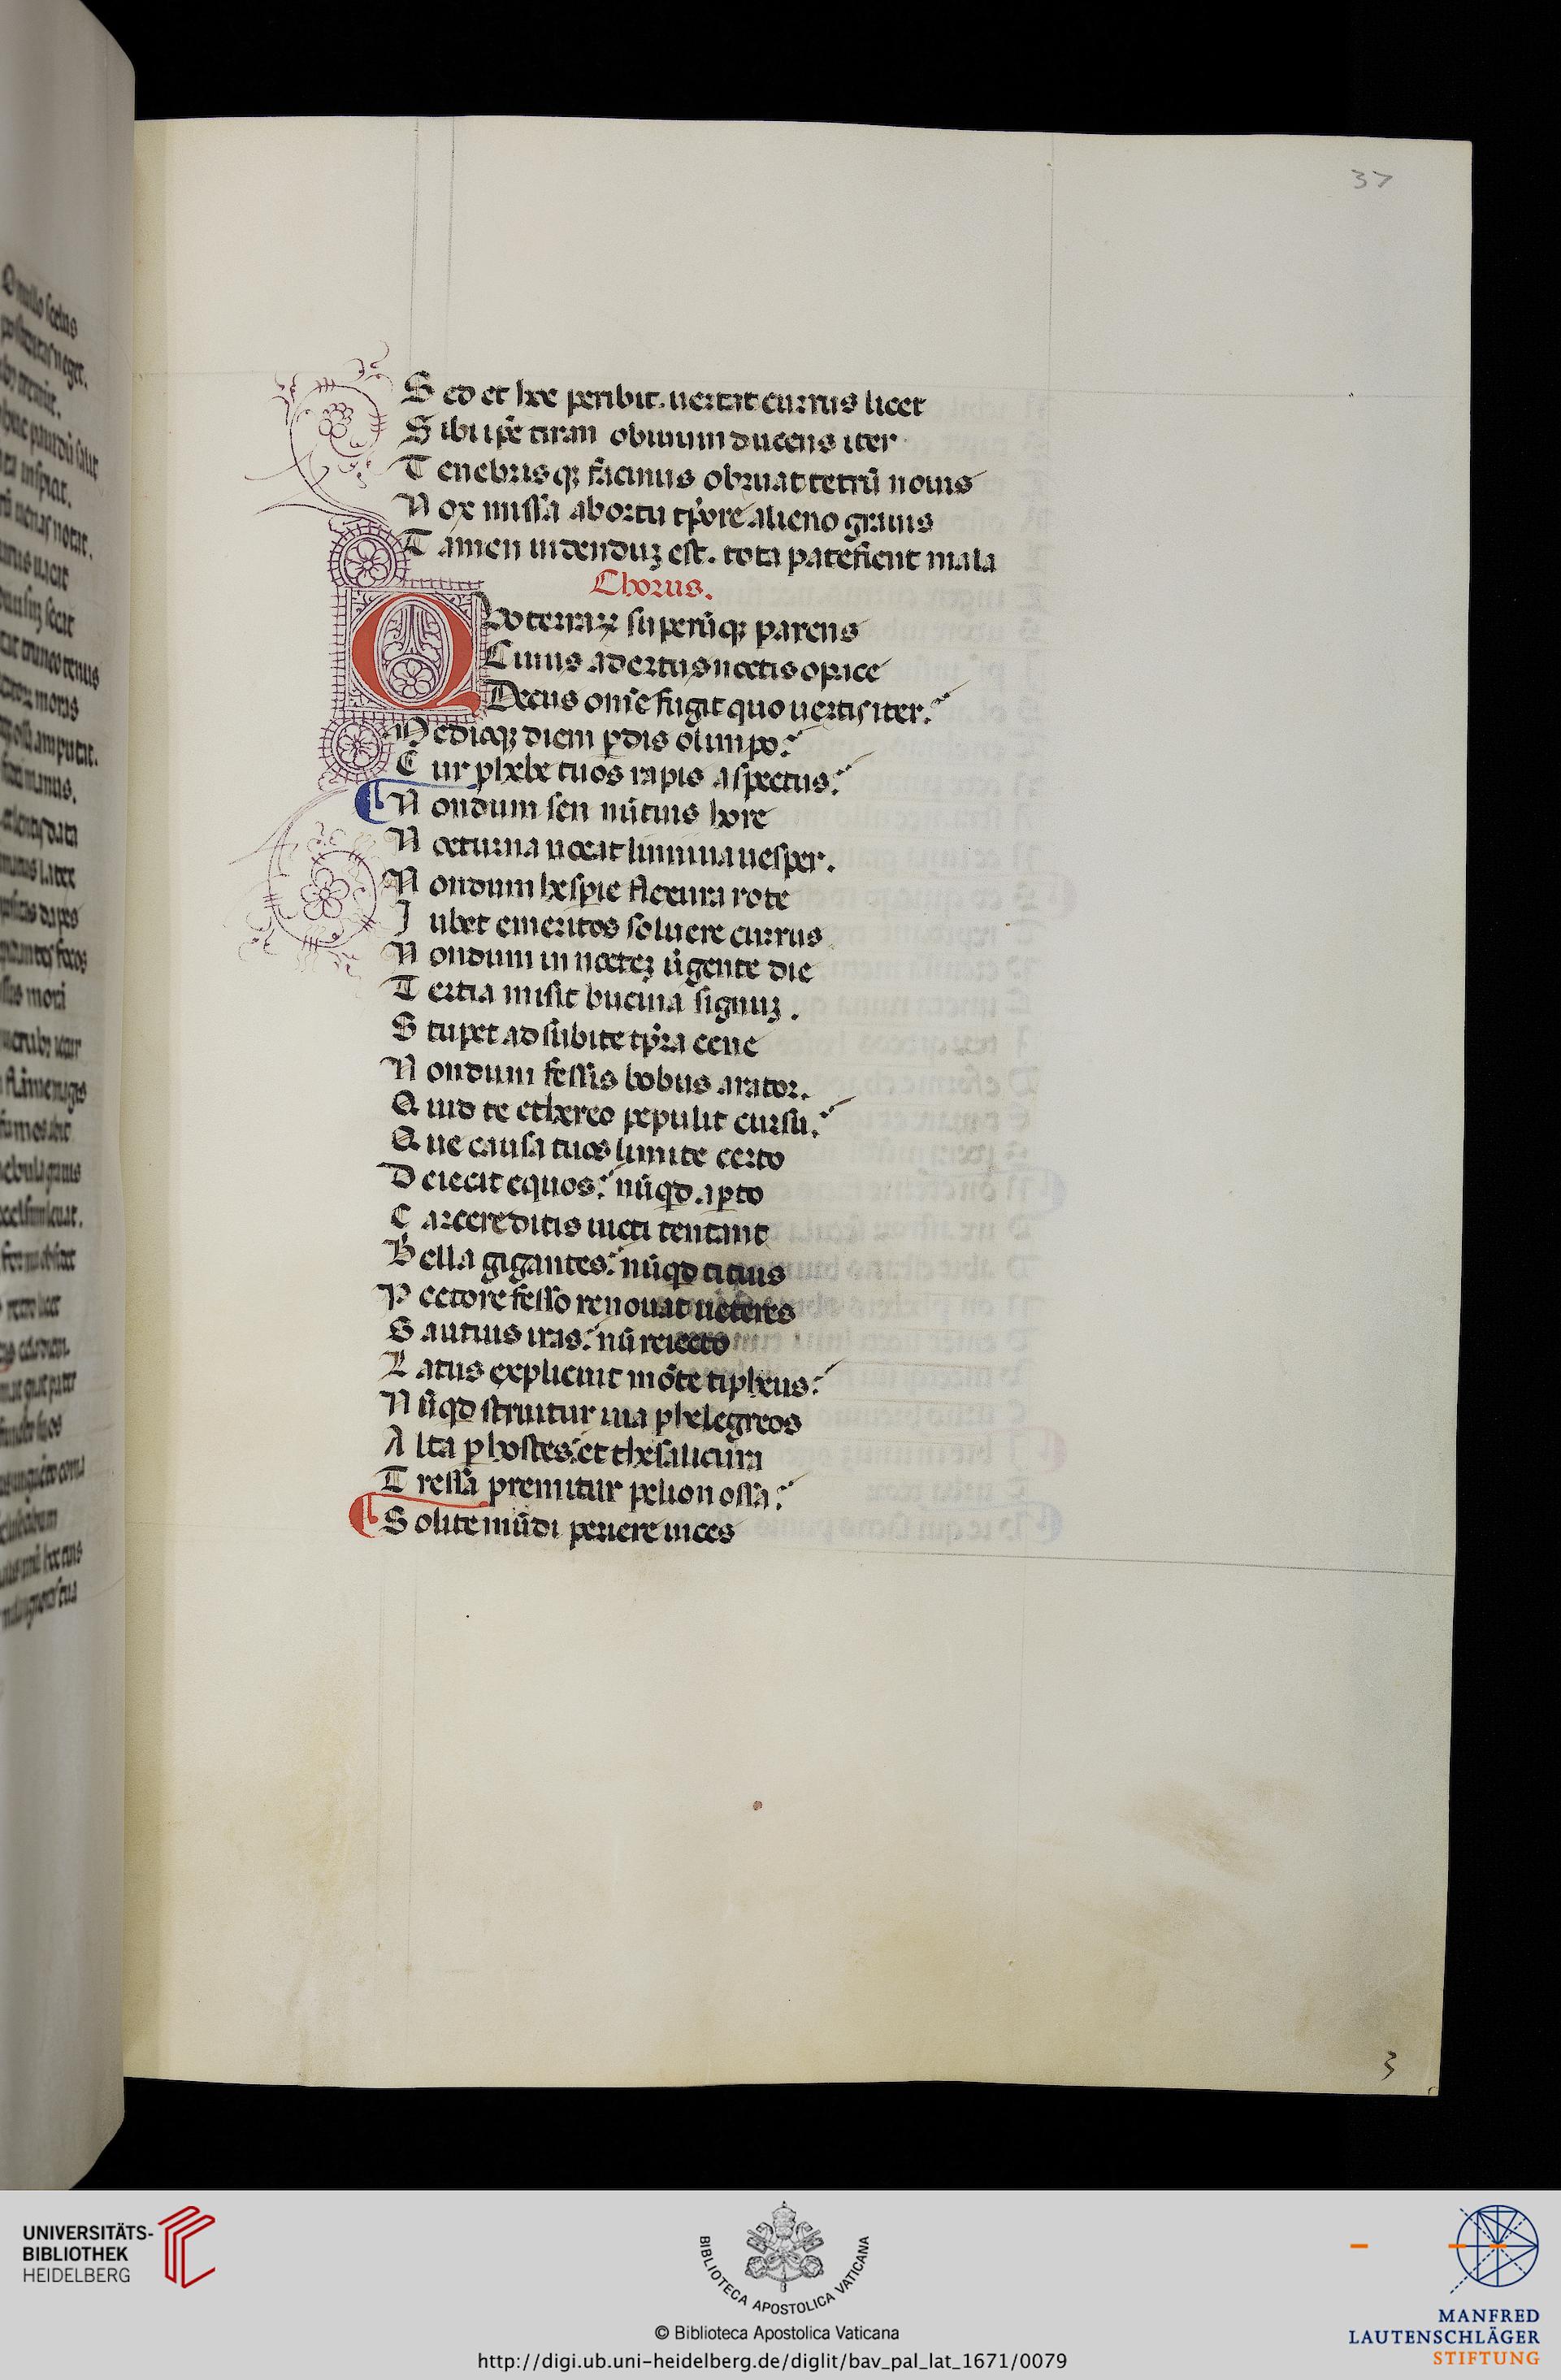 37
Sed et hec peribit. uertat currus licet
Sibi ipse titan obuium ducens iter
Tenebrisqꝫ facinus obruat tetrū nouis
Nox missa abortu tp̄ore alieno grauis
Tamen uidenduꝫ est. tota patefient mala
Chorus.
Quo terraꝝ superūqꝫ parens
Cuius ad ertus noctis opace
Decus om̄e fugit quo uertis iter?
Medioqꝫ diem ꝑdis olimpo?
Cur phebe tuos rapis aspectus?
Nondum seri nūtius hore
Nocturna uocat lumina uesper.
Nondum hesꝑie flexura rote
Iubet emeritos soluere currus
Nondum in nocteꝫ ūgente die
Tertia misit bucina signuꝫ.
Stupet ad subite tp̄ra cene
Nondum fessis bobus arator.
Quid te ethereo pepulit cursu?
Que causa tuos limite certo
Deiecit equos? nūqd aꝑto
Carcere ditis uicti tentant
Bella gigantes? nūqd titius
Pectore fesso renouat ueteres
Sautius iras? nū reiecto
Latus explicuit mōte tipheus?
Nūqd struitur uia phelegreos
Alta ꝑ hostes? et thesalicum
Tressa premitur pelion ossa?
Solite mūdi periere uices
3
UNIVERSITÄTS-
BIBLIOTHEK
HEIDELBERG
BIBLIOTECA APOSTOLICA VATICANA
© Biblioteca Apostolica Vaticana
http://digi.ub.uni-heidelberg.de/diglit/bav_pal_lat_1671/0079
MANFRED
LAUTENSCHLÄGER
STIFTUNG